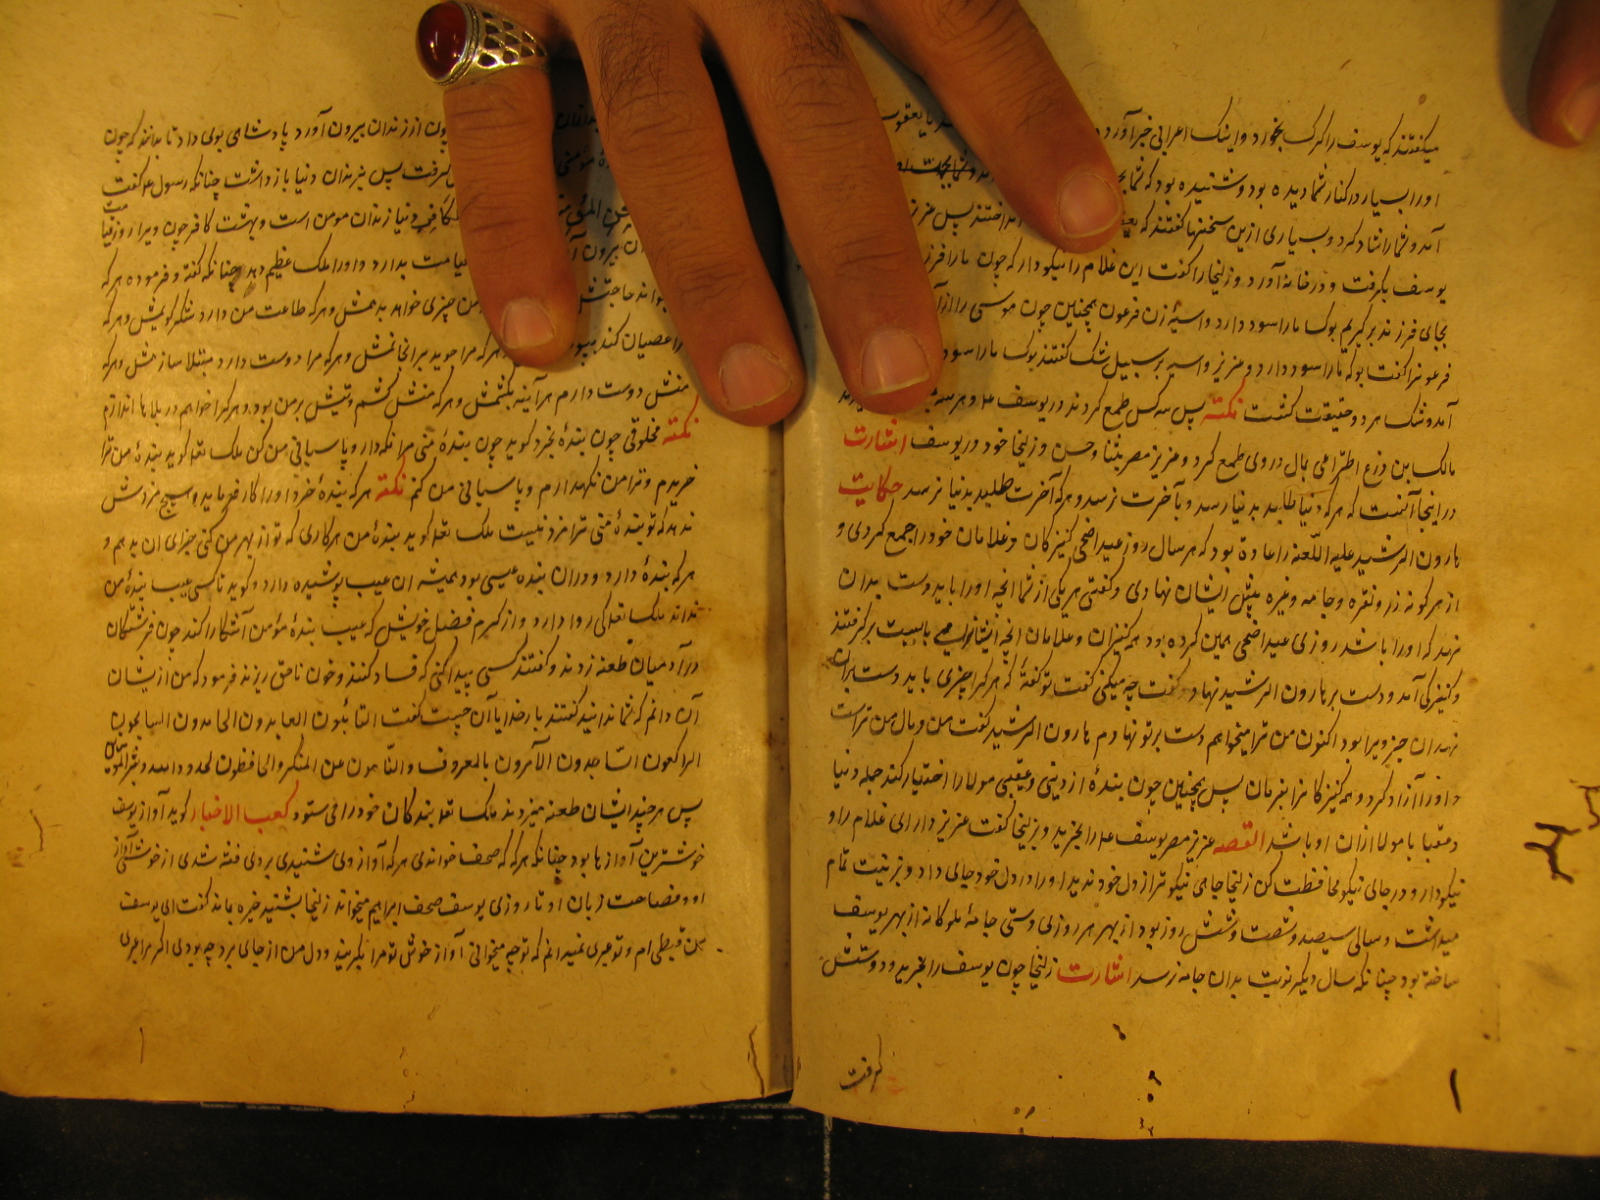 میکفتند که یوسف را کرک بخورد و اینک اعرابی خبر آورد
او را بسیار در کنار شما دیده بود و شنیده بود که
آمد و شما را نشاد کرد و بسیاری ازین سخنها کفتند که پس عزیز
یوسف بکرفت و در خانه آورد و زلیخا را کفت این غلام را نیکو دار که چون ما را
بجای فرزند بر کیریم بوک ما را سود دارد و آسیه زن فرعون همچنین چون موسی را
فرعون را کفت بوک ما را سود دارد و عزیز و آسیه بر سبیل شک کفتند بوک ما را سود
آمد و شک هر دو حقیقت کشت نکته پس سه کس طمع کردند در یوسف
مالک بن ذعر بمال در وی طمع کرد و عزیز مصر و زلیخا خود در یوسف اشارت
در اینجا آنست که هر که دنیا طلبد بدنیا رسد و بآخرت نرسد و هر که آخرت طلبد بدنیا نرسد حکایت
هارون الرشید علیه اللعنه را عادة بود که هر سال روز عید اضحی کنیزکان و غلامان خود را جمع کردی و
از هر کونه زر و نقره و جامه و غیره پیش ایشان نهادی و کفتی هر یکی از شما آنچه او را باید دست بدان
نهد که او را باشد روزی عید اضحی همین کرده بود همه کنیزان و غلامان آنچه برکرفتند
و کنیزکی آمد و دست بر هارون الرشید نهاد کفت چه میکنی کفت تو کفتهٔ که هر که را چیزی باید دست بران
نهد آن چیز ویرا بود اکنون من ترا میخواهم دست بر تو نهادم هارون الرشید کفت من و مال من تراست
و او را آزاد کرد و همه کنیزکان را بفرمان پس همچنین چون بندهٔ از دنیی و عقبی مولا را اختیار کند جمله دنیا
و عقبا با مولا ازان او باشد القصه عزیز مصر یوسف علیه را بخرید و بزلیخا کفت عزیز دار این غلام را و
نیکو دار و در جای نیکو محافظت کن زلیخا جای نیکوتر از دل خود ندید او را در دل خود جای داد و تربیت تمام
میداشت و سالی سیصد و شصت و شش روز بود از بهر هر روزی دستی جامهٔ ملوکانه از بهر یوسف
ساخته بود چنانکه سال دیکر نوبت بدان جامه نرسد اشارت زلیخا چون یوسف را بخرید و دوستش
کرفت
از زندان بیرون آورد پادشاهی بوی داد تا بدانند که چون
کرفت پس در زندان دنیا باز داشت چنانکه رسول ع کفت
دنیا زندان مومن است و بهشت کافر چون ویرا روز قیامت
بیرون بدارد و او را ملک عظیم دهد چنانکه کفته و فرموده هر که
حاجتش من چیزی خواهد بدهمش و هر که طاعت من دارد شکر کویمش و هر که
را عصیان کند هر که مرا جوید و هر که مرا دوست دارد مبتلا سازمش و هر که
منش دوست دارم هر آینه بکشمش و هر که منش کشم دیتش بر من بود و هر که را خواهم در بلاها اندازم
نکته مخلوقی چون بندهٔ بخرد کوید چون بندهٔ منی مرا نکه دار و پاسبانی من کن ملک تعه کوید بندهٔ من ترا
خریدم و ترا من نکهدارم و پاسبانی من کنم نکته هر که بندهٔ خرد او را کار فرماید و هیچ مزدش
ندهد که تو بندهٔ منی ترا مزد نیست ملک تعه کوید بندهٔ من هر کاری که تو از بهر من کنی جزای آن بدهم و
هر که بندهٔ دارد و در آن بنده عیبی بود همیشه آن عیب پوشیده دارد و کوید تا کسی عیب بندهٔ من
نداند ملک تعه کی روا دارد و از کرم فضل خویش که عیب بندهٔ مؤمن آشکارا کند چون فرشتکان
در آدمیان طعنه زدند و کفتند کسی پیدا کنی که فساد کنند و خون ناحق ریزند فرمود که من از ایشان
آن دانم که شما ندانید کفتند بار خدایا آن چیست کفت التائبون العابدون الحامدون السایحون
الراکعون الساجدون الآمرون بالمعروف والناهون عن المنکر والحافظون لحدود الله وبشر المؤمنین
پس هر چند ایشان طعنه میزدند ملک تعه بندکان خود را می ستود کعب الاخبار کوید آواز یوسف
خوشترین آوازها بود چنانکه هر که که صحف خواندی هر که آواز وی شنیدی بر وی فتنه شدی از خوشی آواز
او و فصاحت زبان او تا روزی یوسف صحف ابراهیم میخواند زلیخا بشنید خیره بماند کفت ای یوسف
من قبطی ام و تو عبری نمیدانم که تو چه میخوانی آواز خوش تو مرا بکریند و دل من از جای برد چه بودی اکر مرا عبری